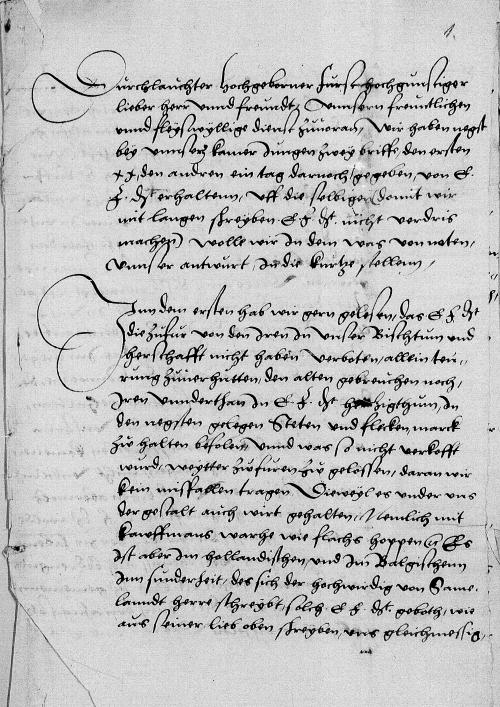 1.
Durchlauchter Hochgeborner Furst hochgunstiger
lieber herr unnd freundt, Unnsern freuntlichen
unnd fleyswyllige dienst zuvoran, Wir haben negst
bey unnser kamer Jungen zwey briffe den ersten
den andren ein tag darnoch gegeben, von E.
F. dt erhaltenn, Uff die selbigen (domit wir
mit langen schreyben E F dt nicht verdris
machen) wolle wir in dem was von noten,
unnser antwurt, in die kurtze stellenn,
Inn dem ersten hab wir gern gelesen, das E F dt
die zufur von den Iren in unser Bischtum und
herschafft nicht haben verboten, allein teu-
rung zuverhutten, den alten gebreuchen noch,
Iren unnderthan in E. F. dt hertzigthum, in
den negsten gelegen Steten und flecken marck
zu halten befolen, Unnd was so nicht verkofft
wurd, weytter zu furen zu gelossen, daran wir
kein misfallen tragen, Dieweyl es under uns
der gestalt auch wirt gehalten, Nemlich mit
kauffmans warhe wie flachs hoppen Es
ist aber im hollandischen, und im Balgischenn
im sunderheit, des sich der hochwirdig von Same-
landt herre schreybt, solch E F dt geboth, wie
aus seiner lieb oben schreyben, uns gleichmessig,